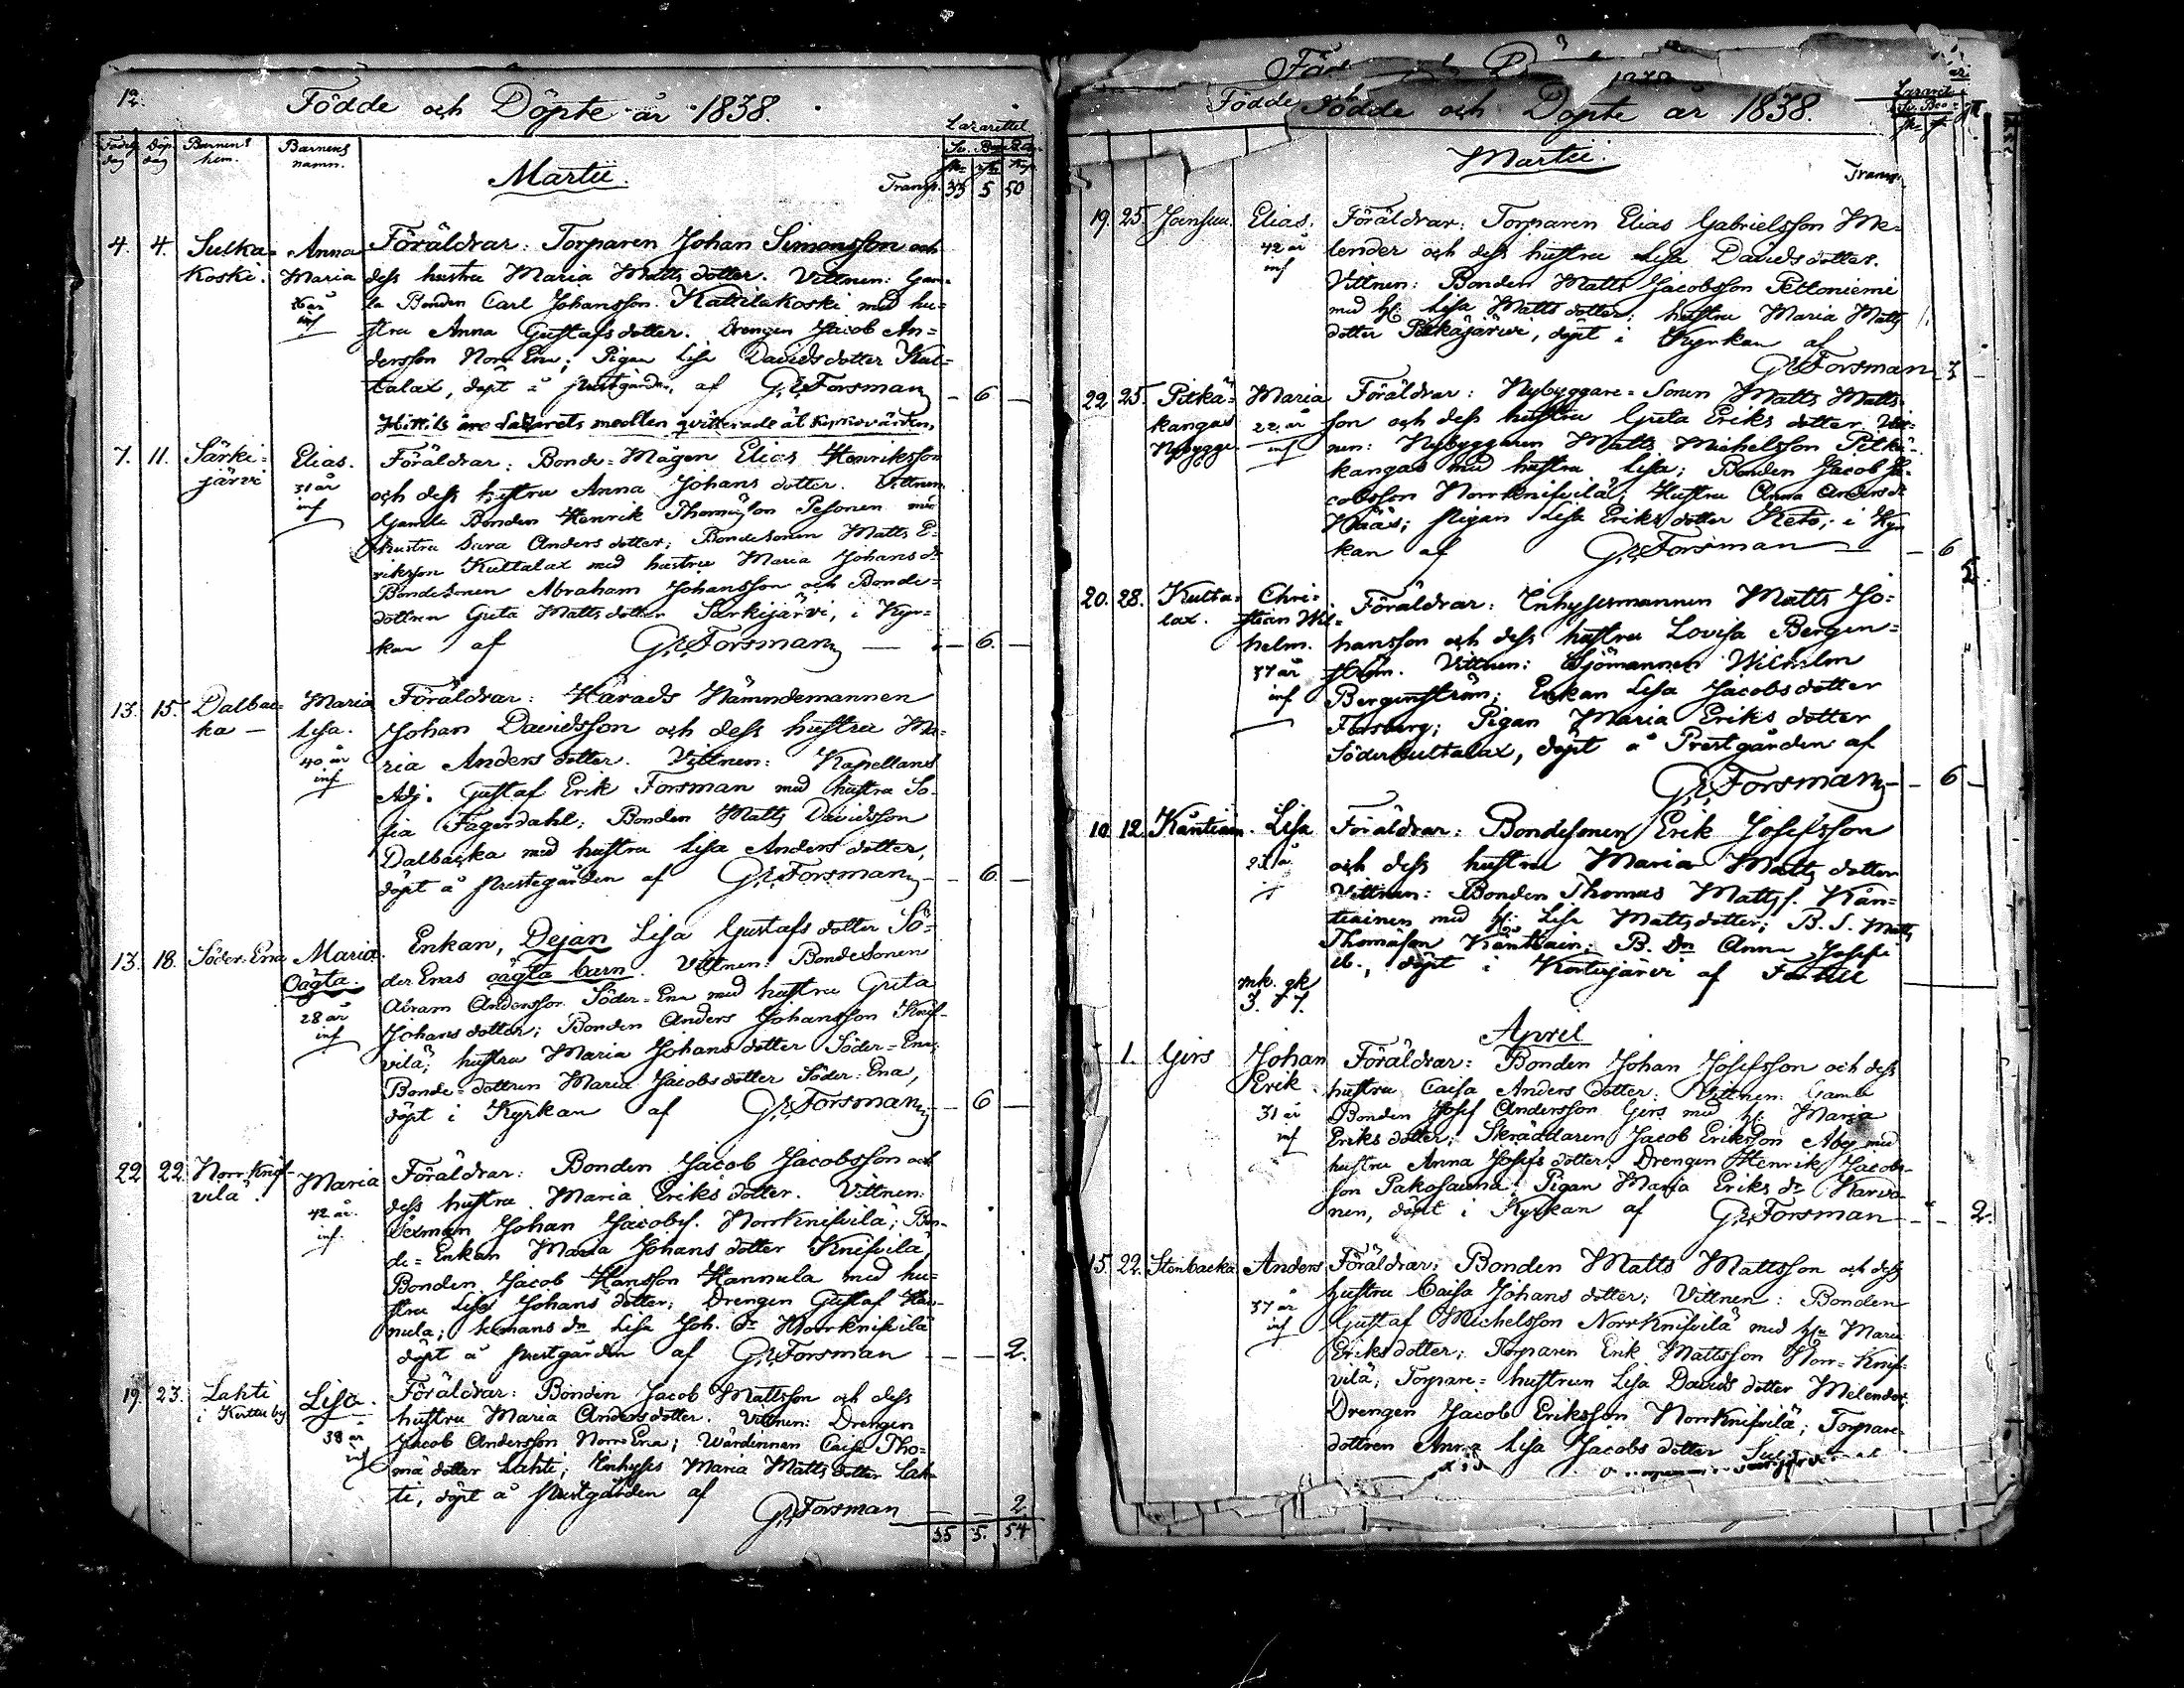 12.
Födde och Döpte år 1838.
Lazarettet
Födelse dag
Döp. dag
Barnens hem.
Barnens namn.
Martii.
Transp. 33 5 50
4. 4. Sulka= Anna Föräldrar: Torparen Johan Simonsson och
koski. Maria dess hustru Maria Matts dotter. Vittnen: Gam=
la Bonden Carl Johansson Kattilakoski med hu=
inf stru Anna Gustafs dotter. Drengen Jacob An=
dersson Norr Ena; Pigan Lisa Davids dotter Kul=
talax, döpt å prestgården, af G.E. Forsman — 6 —
Hittils äro Lazarets medlen qvitterade åt Kyrkovärden
7. 11. Särki= Elias. Föräldrar: Bonde=Mågen Elias Henriksson
järvi 31 år och dess hustru Anna Johans dotter. Vittnen
inf Gamla Bonden Henrik Thomasson Pesonen med
hustru Sara Anders dotter; Bondesonen Matts E=
riksson Kultalax med hustru Maria Johans dr
Bondesonen Abraham Johansson och Bonde=
dottren Greta Matts dotter Särkijärvi, i Kyr=
kan af G.E. Forsman — 6. —
13. 15. Dalbac= Maria Föräldrar: Härads Nämndemannen
ka — Lisa. Johan Davidsson och dess hustru Ma=
40 år ria Anders dotter. Vittnen: Kapellans
inf Adj. Gustaf Erik Forsman med hustru So=
fia Fagerdahl; Bonden Matts Davidsson
Dalbacka med hustru Lisa Anders dotter,
döpt å prestegården af G.E. Forsman — 6 —
Enkan, Dejan Lisa Gustafs dotter Sö=
13. 18. Söder=Ena Maria. der Enas oägta barn. Vittnen: Bondesonen
Oägta. Abram Andersson Söder=Ena med hustru Greta
28 år Johans dotter; Bonden Anders Johansson Knif=
inf vilä; hustru Maria Johans dotter Söder=Ena;
Bonde=dottren Maria Jacobs dotter Söder=Ena,
döpt i Kyrkan af G.E. Forsman — 6 —
22 22. Norr Knif= Maria Föräldrar: Bonden Jacob Jacobsson och
vilä. 42 år. dess hustru Maria Eriks dotter. Vittnen:
inf. Sexman Johan Jacobs. Norrknifvilä; Bon=
de=Enkan Maria Johans dotter Knifvilä,
Bonden Jacob Hansson Hannula med hu=
stru Lisa Johans dotter; Drengen Gustaf Han=
nula; Sexmans dn Lisa Joh. dr Norrknifvilä
döpt å prestgården af G.E. Forsman — — 2.
19. 23. Lahti Lisa. Föräldrar: Bonden Jacob Mattsson och dess
i Kerttu by hustru Maria Anders dotter. Vittnen: Drengen
38 år Jacob Andersson Norr Ena; Wärdinnan Caisa Tho=
inf mä dotter Lahti; Inhyses Maria Matts dotter Lah=
ti, döpt å prestgården af
G.E. Forsman — — 2
35 5. 54
Födde och Döpte år 1838.
Lazaret
Martii.
Transp.
19. 25. Elias. Föräldrar: Torparen Elias Gabrielsson Me=
42 år lender och dess hustru Lisa Davids dotter.
inf Vittnen: Bonden Matts Jacobsson Peltoniemi
med h: Lisa Matts dotter; hustru Maria Matts
dotter Pitkäjärvi, döpt i Kyrkan af
G.E. Forsman 3
22 25. Pitkä= Maria Föräldrar: Nybyggare=Sonen Matts Matts
kangas 22 år son och dess hustru Greta Eriks dotter. Vitt=
Nybygge. inf nen: Nybyggaren Matts Michelsson Pitkä=
kangas med hustru Lisa; Bonden Jacob Ja=
cobsson Norrknifvilä; Hustru Anna Anders dr
Nääs; Pigan Lisa Eriks dotter Keto, i Kyr
kan af G.E. Forsman — 6
20. 28. Kulta= Chri= Föräldrar: Inhysesmannen Matts Jo=
lax. stian Wil= hansson och dess hustru Lovisa Bergen=
helm. ström. Vittnen: Sjömannen Wilhelm
37 år Bergenström; Enkan Lisa Jacobs dotter
inf Forsberg; Pigan Maria Eriks dotter
Söderkultalax, döpt å Prestgården af
G.E. Forsman — 6 —
10. 12. Lisa Föräldrar: Bondesonen Erik Josefsson
och dess hustru Maria Matts dotter
Vittnen: Bonden Thomas Matts. Kän=
tiainen med h: Lisa Matts dotter; B. S. Matts
Thomasson; B. Dn Anna Josefs
döpt i Kortesjärvi af
mk. gk
3. 7.
April
1. Girs Johan Föräldrar: Bonden Johan Josefsson och dess
Erik hustru Caisa Anders dotter; Vittnen: Gamla
31 år Bonden Josef Andersson Girs med h: Maria
inf Eriks dotter; Skräddaren Jacob Eriksson Abg med
hustru Anna Josefs dotter; Drengen Henrik Jacobs=
son Pakosauna; Pigan Maria Eriks dr Karvo=
nen, döpt i Kyrkan af G.E. Forsman — — 2.
15. 22. Stenbacka Anders Föräldrar: Bonden Matts Mattsson och dess
hustru Caisa Johans dotter; Vittnen: Bonden
37 år Gustaf Michelsson Norrknifvilä med h: Maria
inf Eriks dotter; Torparen Erik Mattsson Norr=Knif=
vilä; Torpare=hustrun Lisa Davids dotter Melender;
Drengen Jacob Eriksson Norrknifvilä; Torpare=
dottren Anna Lisa Jacobs dotter